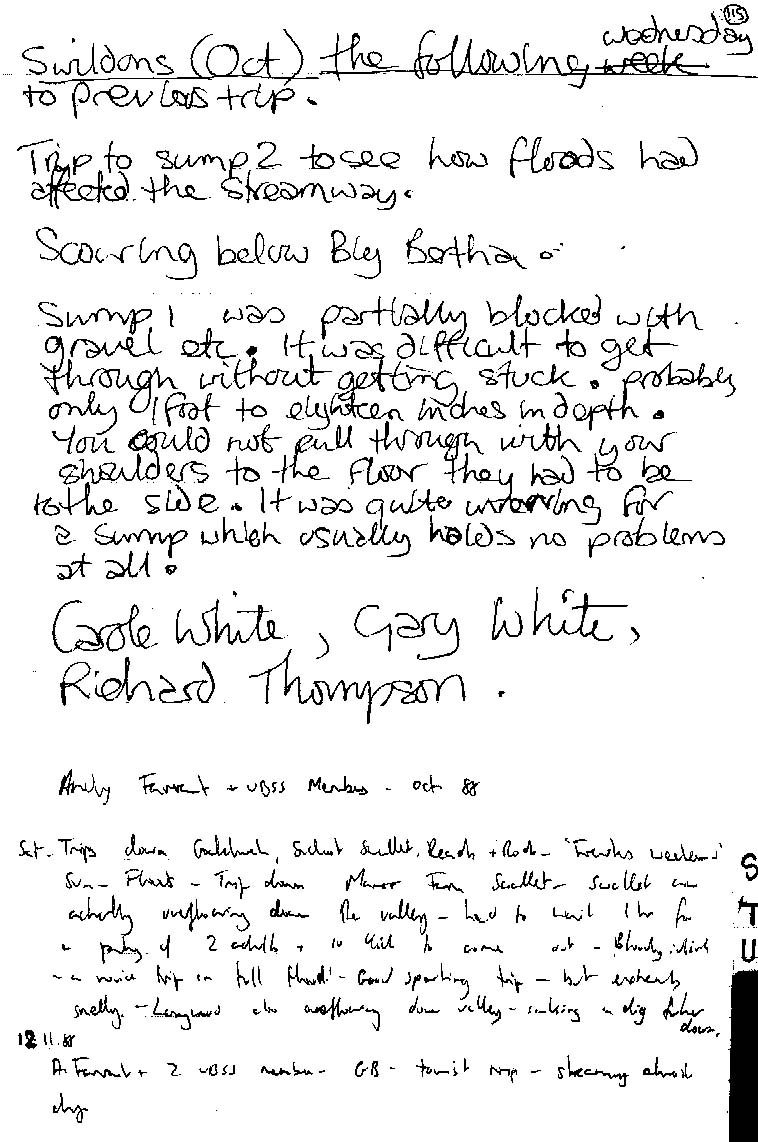 115
Wednesday
Swildons (Oct) the following week
to previous trip.
Trip to sump 2 to see how floods had
affected the streamway.
Scouring below Big Bertha.
Sump 1 was partially blocked with
gravel etc. It was difficult to get
through without getting stuck. probably
only 1 foot to eighteen inches in depth.
You could not pull through with your
shoulders to the floor they had to be
to the side. It was quite worrying for
a sump which usually holds no problems
at all.
Carole White, Gary White,
Richard Thompson.
Andy Farrant + UBSS Members - Oct 88
Sat - Trips down Swallet, Reads + Rods - 'Freshers weekend'
Sun - Floods - Trip down Manor Farm Swallet - swallet
actually overflowing down the valley - had to wait 1 hr for
a party of 2 adults + 10 to come out - Bloody
- a novice trip in full flood! - Good sporting trip - but extremely
smelly. - Longwood also overflowing down valley - sinking in dig further
down.
S
T
U
12 11.88
A. Farrant + 2 UBSS members - GB - tourist trip - streamway almost
dry